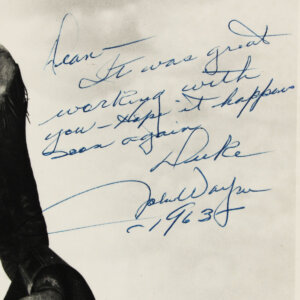 Dean—
It was great
working with
you – Hope it happens
soon again
Duke
John Wayne
– 1963 –